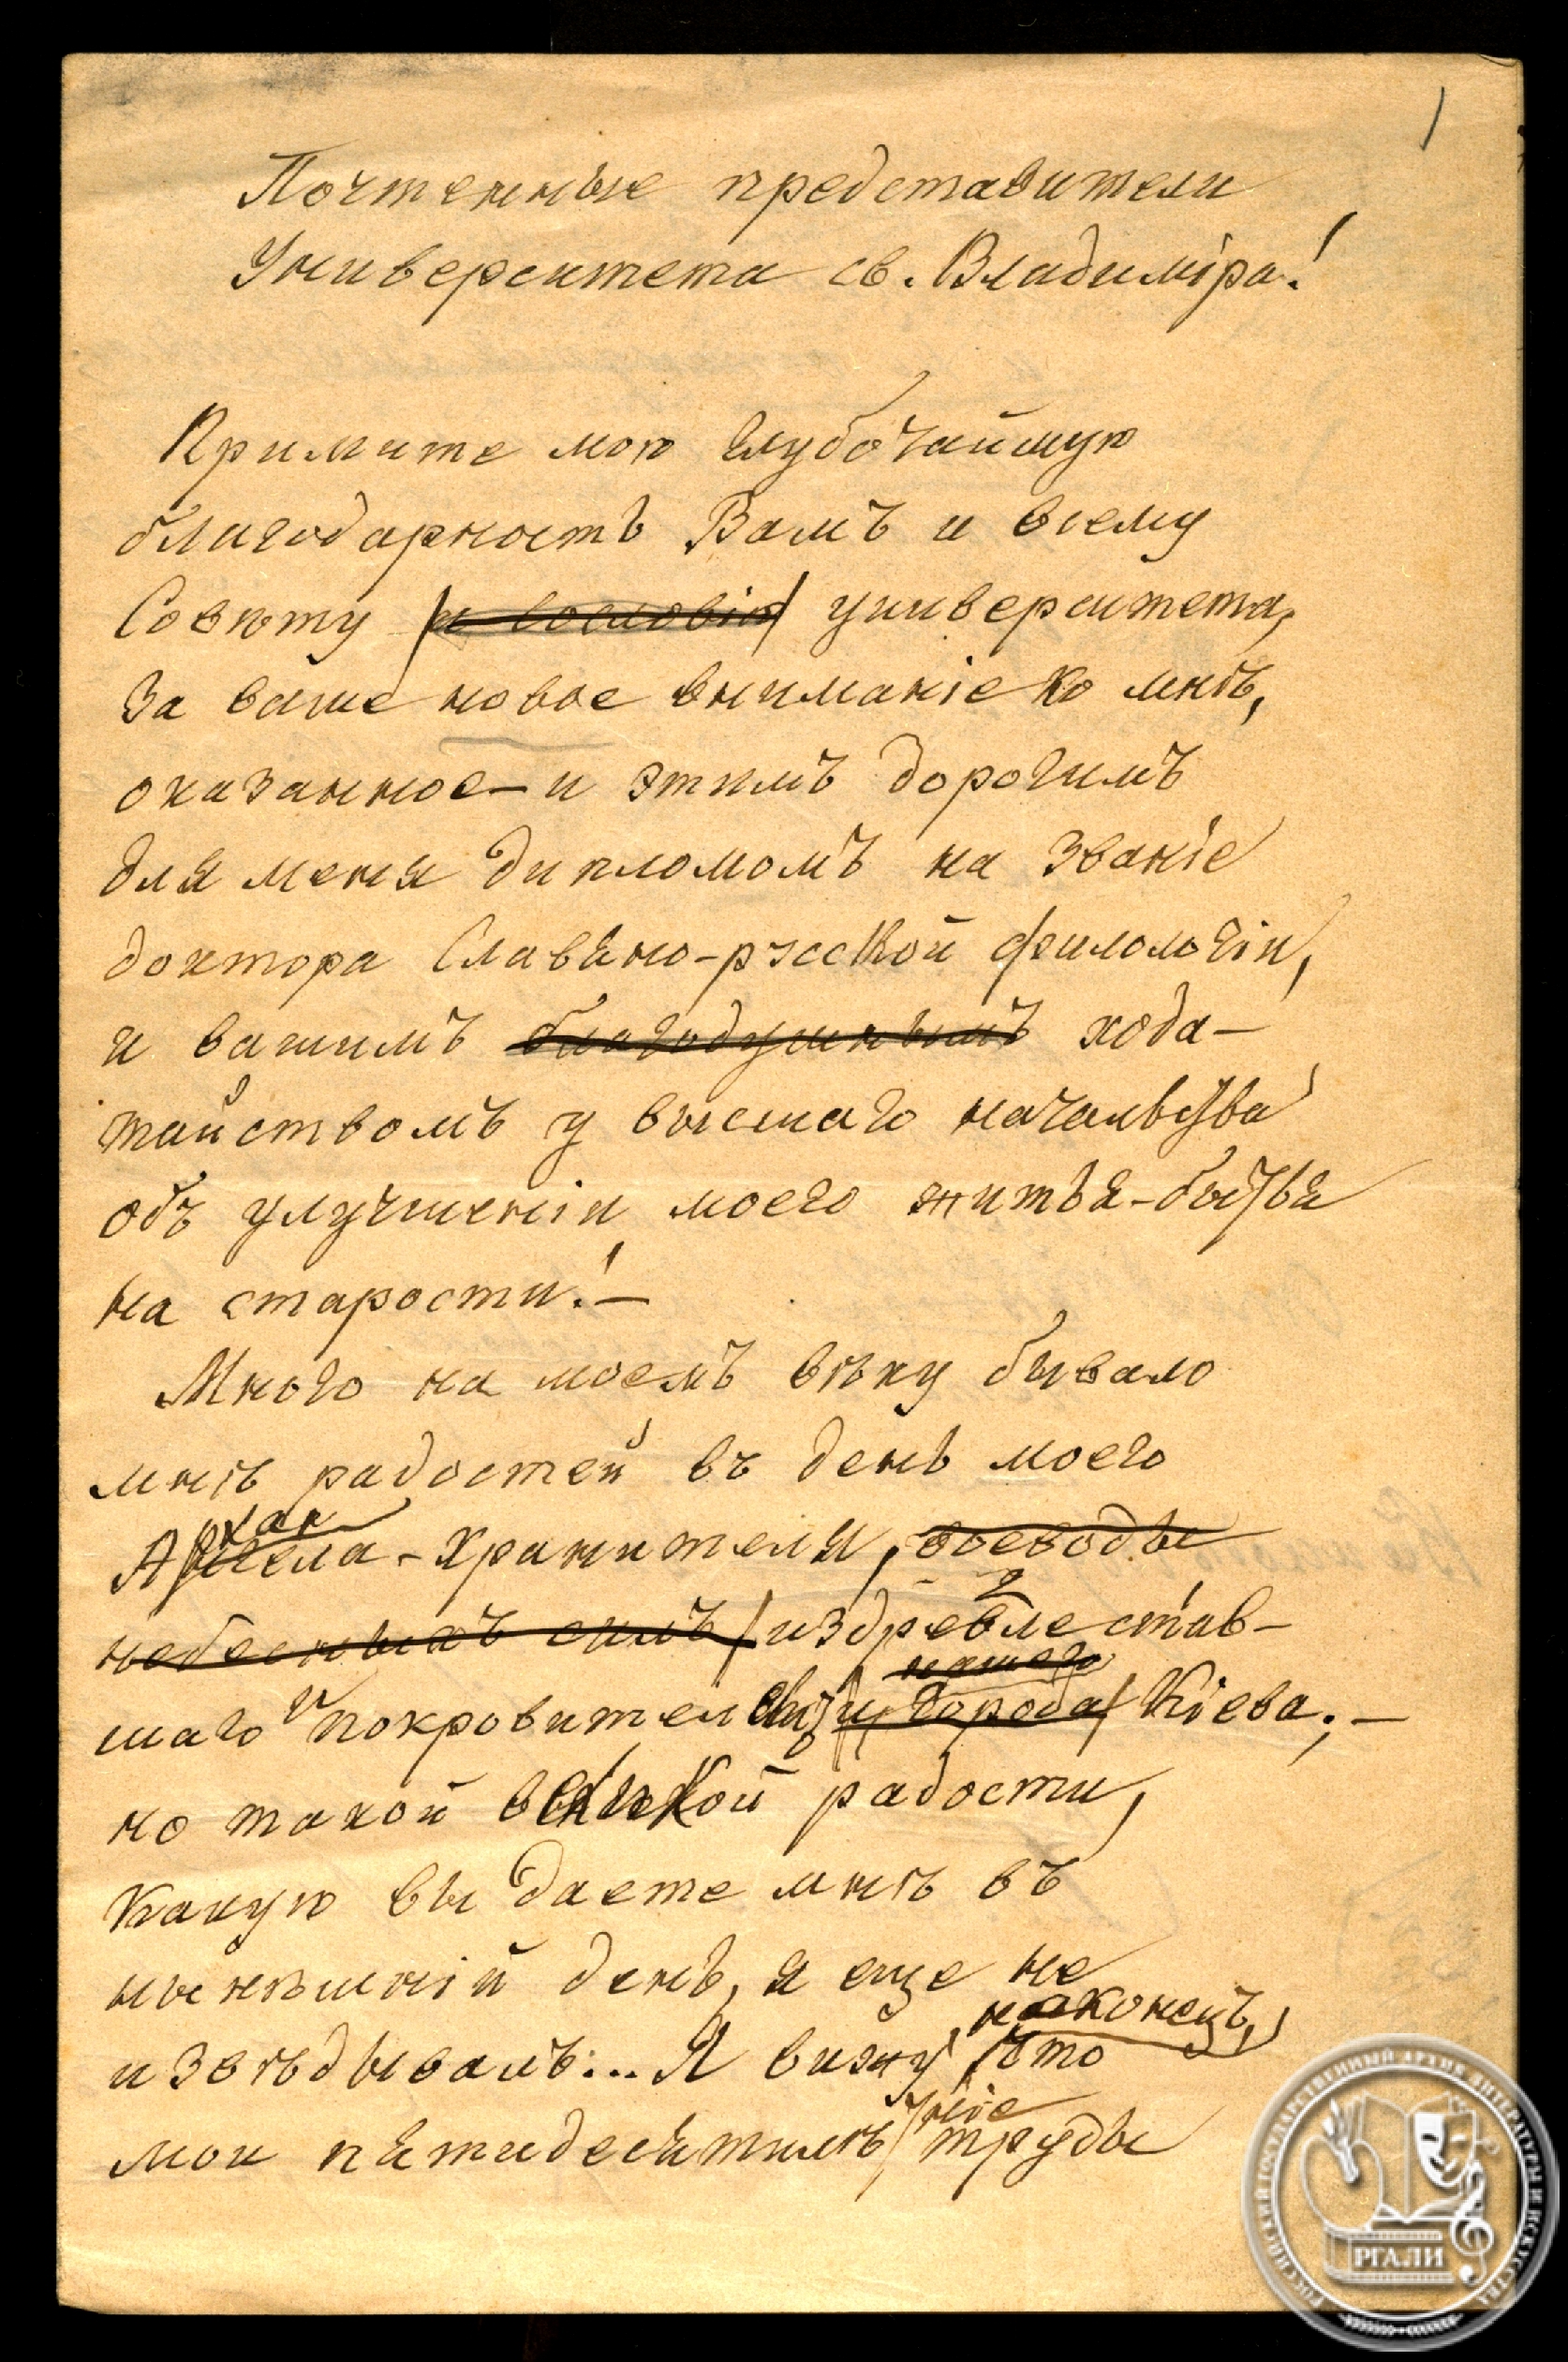 1
Почтенные представители
Университета св. Владиміра!
Примите мою глубочайшую
благодарность Вамъ и всему
Совѣту и сословію университета,
за ваше новое вниманіе ко мнѣ,
оказанное – и этимъ дорогимъ
для меня дипломомъ на званіе
доктора Славяно-русской филологіи,
и вашимъ благодушнымъ хода-
тайствомъ у высшаго начальства
объ улучшеніи моего житья-бытья
на старости! –
Много на моемъ вѣку бывало
мнѣ радостей въ день моего
Архангела-Хранителя, воеводы
небесныхъ силъ издревле став-
нашего
шаго покровителемъ города Кіева; –
но такой великой радости,
какую вы даете мнѣ въ
нынѣшній день, я еще не
наконецъ,
извѣдывалъ... Я вижу, что
мои пятидесятилѣтніе труды
РОССИЙСКИЙ ГОСУДАРСТВЕННЫЙ АРХИВ ЛИТЕРАТУРЫ И ИСКУССТВА
РГАЛИ